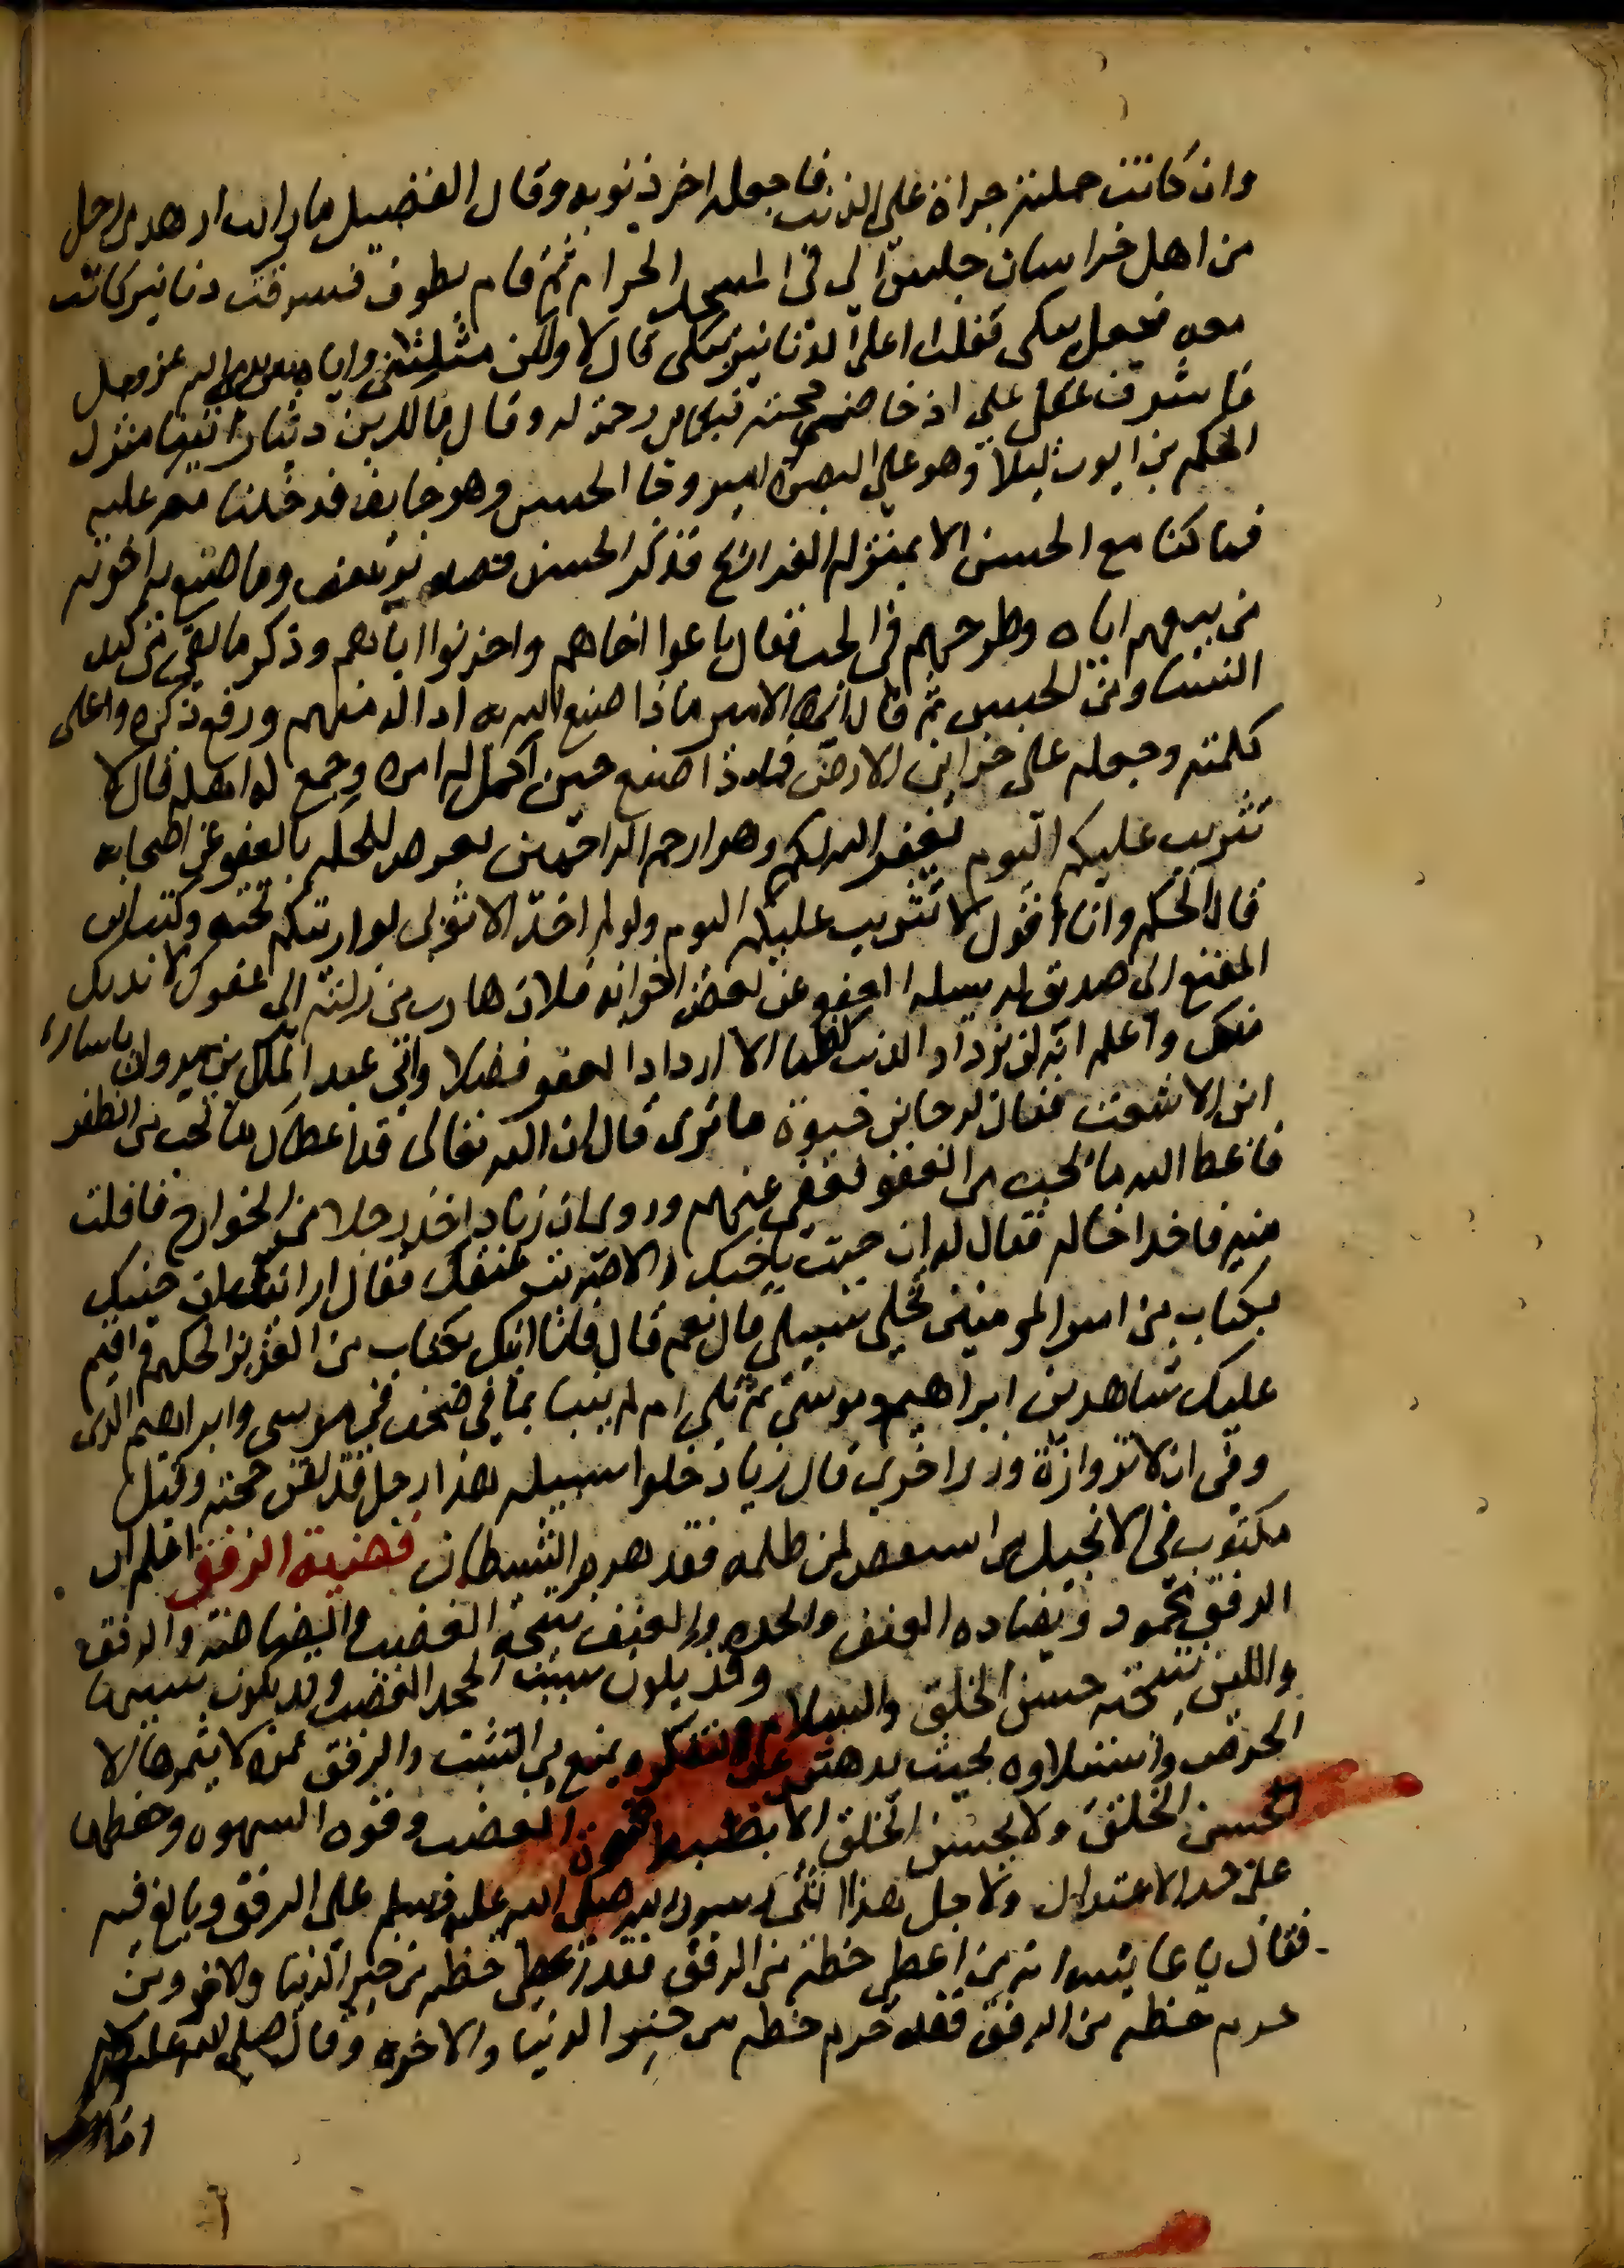 وان كانت حملته جراة على الذنب فاجعله اخر ذنوبه وقال الفضيل ما رايت ازهد من رجل
من اهل خراسان جلس الى في المسجد الحرام ثم قام يطوف فسرقت دنانير كانت
معه فجعل يبكى فقلت اعلى الدنانير تبكى قال لا ولكن مثلتنى واياه بين يدى الله عز وجل
فاشرف عقلى على ادحاض حجته فبكاى رحمة له وقال مالك بن دينار اتينا منزل
الحكم بن ايوب ليلا وهو على البصرة امير وجا الحسن وهو خايف فدخلنا معه عليه
فما كنا مع الحسن الا بمنزلة الفراريج فذكر الحسن قصه يوسف وما صنع به اخوته
من بيعهم اياه وطرحهم فى الجب فقال باعوا اخاهم واحزنوا اباهم وذكر ما لقى من كيد
النسا ومن الحبس ثم قال ايها الامير ماذا صنع الله به اداله منهم ورفع ذكره واعلى
كلمته وجعله على خزاين الارض فماذا صنع حين اكمل له امره وجمع له اهله قال لا
تثريب عليكم اليوم يغفر الله لكم وهو ارحم الراحمين يعرض للحكم بالعفو عن اصحابه
قال الحكم وانا اقول لا تثريب عليكم اليوم ولو لم اجد الا ثوبى لواريتكم تحته وكتب ابن
المقفع الى صديق له يسله العفو عن بعض اخوانه فلان هارب من زلته الى عفوك لايذ بك
منك واعلم انه لن يزداد الذنب عظما الا ازداد العفو فضلا واتى عبد الملك بن مروان باسارى
ابن الاشعث فقال لرجا بن حيوة ما ترى قال ان الله تعالى قد اعطاك ما تحب من الظفر
فاعط الله ما يحب من العفو فعفى عنهم وروى ان زياد اخذ رجلا من الخوارج فافلت
منه فاخذ اخا له فقال له ان جيت باخيك والا ضربت عنقك فقال ارايت ان جيتك
بكتاب من امير المومنين تخلى سبيلى قال نعم قال فانا اتيك بكتاب من العزيز الحكيم واقيم
عليك شاهدين ابراهيم وموسى ثم تلى ام لم ينبا بما فى صحف موسى وابراهيم الذى
وفى ان لا تزر وازرة وزر اخرى قال زياد خلوا سبيله هذا رجل قد لقن حجته وقيل
مكتوب فى الانجيل من استغفر لمن ظلمه فقد هزم الشيطان فضيلة الرفق اعلم ان
الرفق محمود ويضاده العنف والحده والعنف نتيجة الغضب والفظاظة والرفق
واللين نتيجة حسن الخلق والسلامة وقد يكون سبب الحده الغضب وقد يكون سببها
الحرص واستيلاوه بحيث يدهش عن التفكر ويمنع من التثبت والرفق ثمرة لا يثمرها الا
حسن الخلق ولا يحسن الخلق الا بضبط قوة الغضب وقوه الشهوه وحفظهما
على حد الاعتدال ولاجل هذا اثنى رسول الله صلى الله عليه وسلم على الرفق وبالغ فيه
فقال يا عايشه انه من اعطى حظه من الرفق فقد اعطى حظه من خير الدنيا والاخره ومن
حرم حظه من الرفق فقد حرم حظه من خير الدنيا والاخره وقال صلى الله عليه وسلم